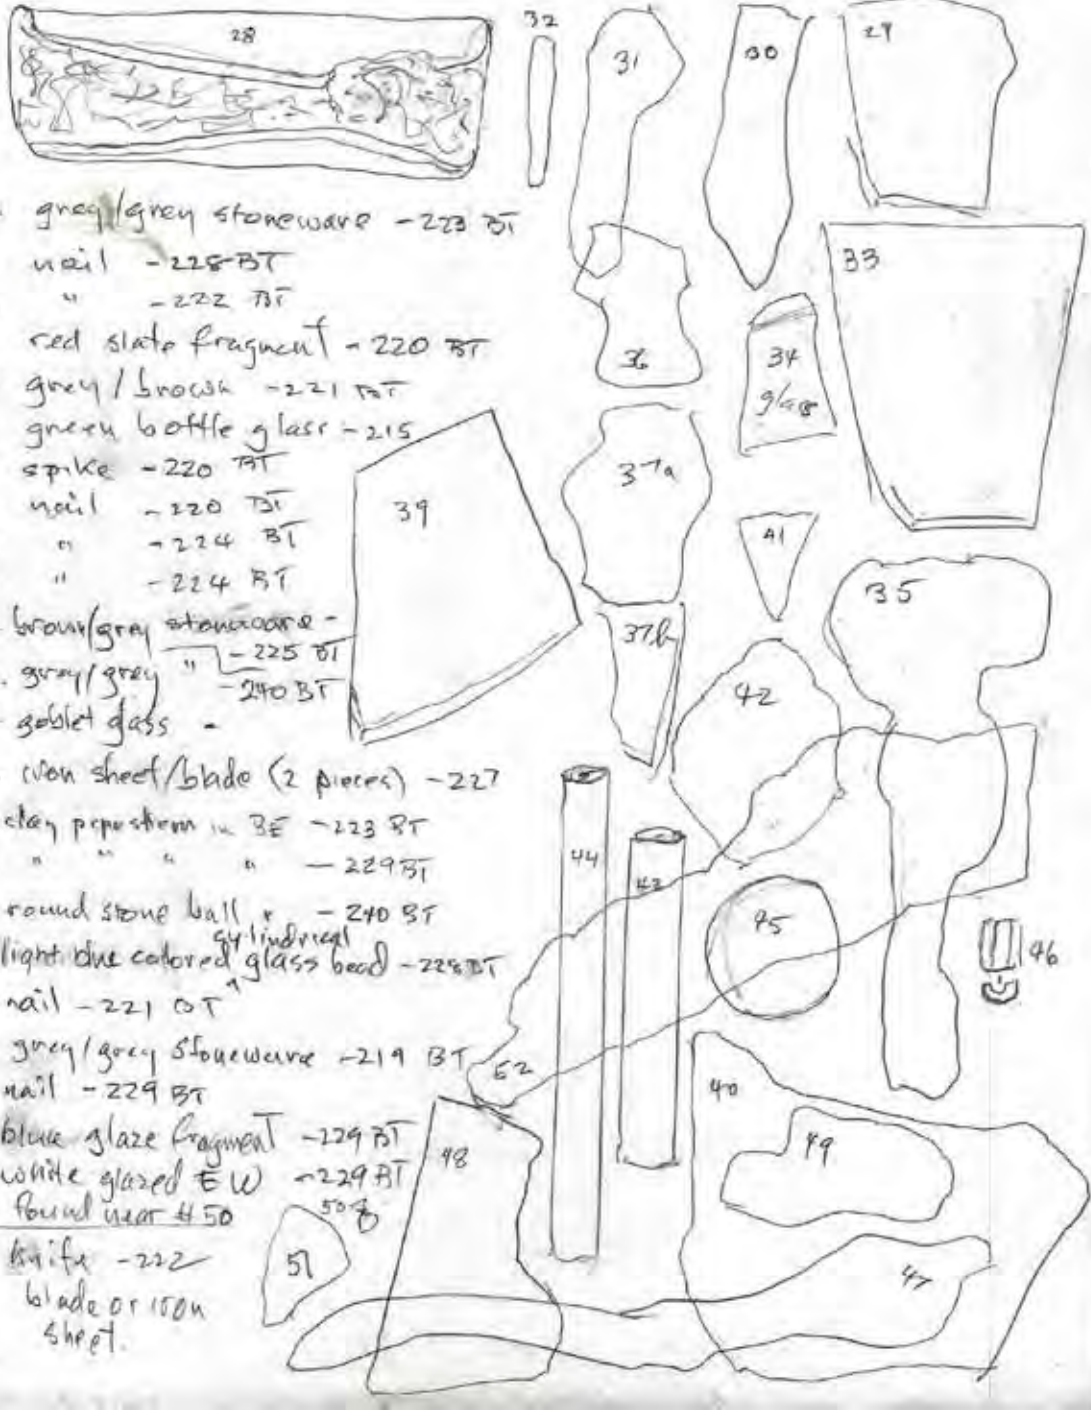 28
32
31
30
29
grey/grey stoneware -223 BT
nail -228 BT
" -222 BT
red slate fragment - 220 BT
grey/brown -221 BT
green bottle glass -215
spike -220 BT
nail -220 BT
" -224 BT
" -224 BT
brown/grey stoneware -
-225 BT
grey/grey " -240 BT
goblet glass -
iron sheet/blade (2 pieces) -227
clay pipestem in BE -223 BT
" " " " -229 BT
round stone ball -240 BT
cylindrical
light blue colored glass bead -228 BT
nail -221 BT
grey/grey stoneware -219 BT
nail -229 BT
blue glaze fragment -229 BT
white glazed EW -229 BT
found near #50
knife -222
blade or iron
sheet.
33
36
34
glass
39
37a
41
35
37b
42
44
43
45
46
52
40
48
49
50
51
47